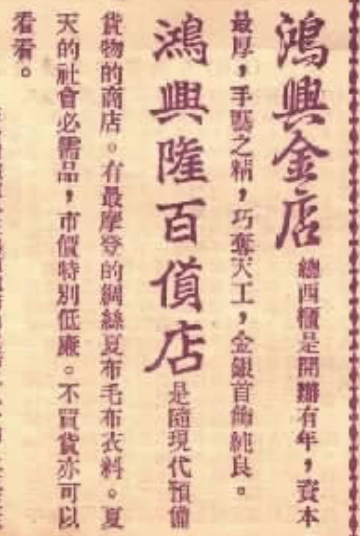 鴻興金店 總西櫃是開辦有年，資本
最厚，手藝之精，巧奪天工，金銀首飾純良。
鴻興隆百貨店 是隨現代預備
貨物的商店。有最摩登的綢絲夏布毛布衣料。夏
天的社會必需品，市價特別低廉。不買貨亦可以
看看。